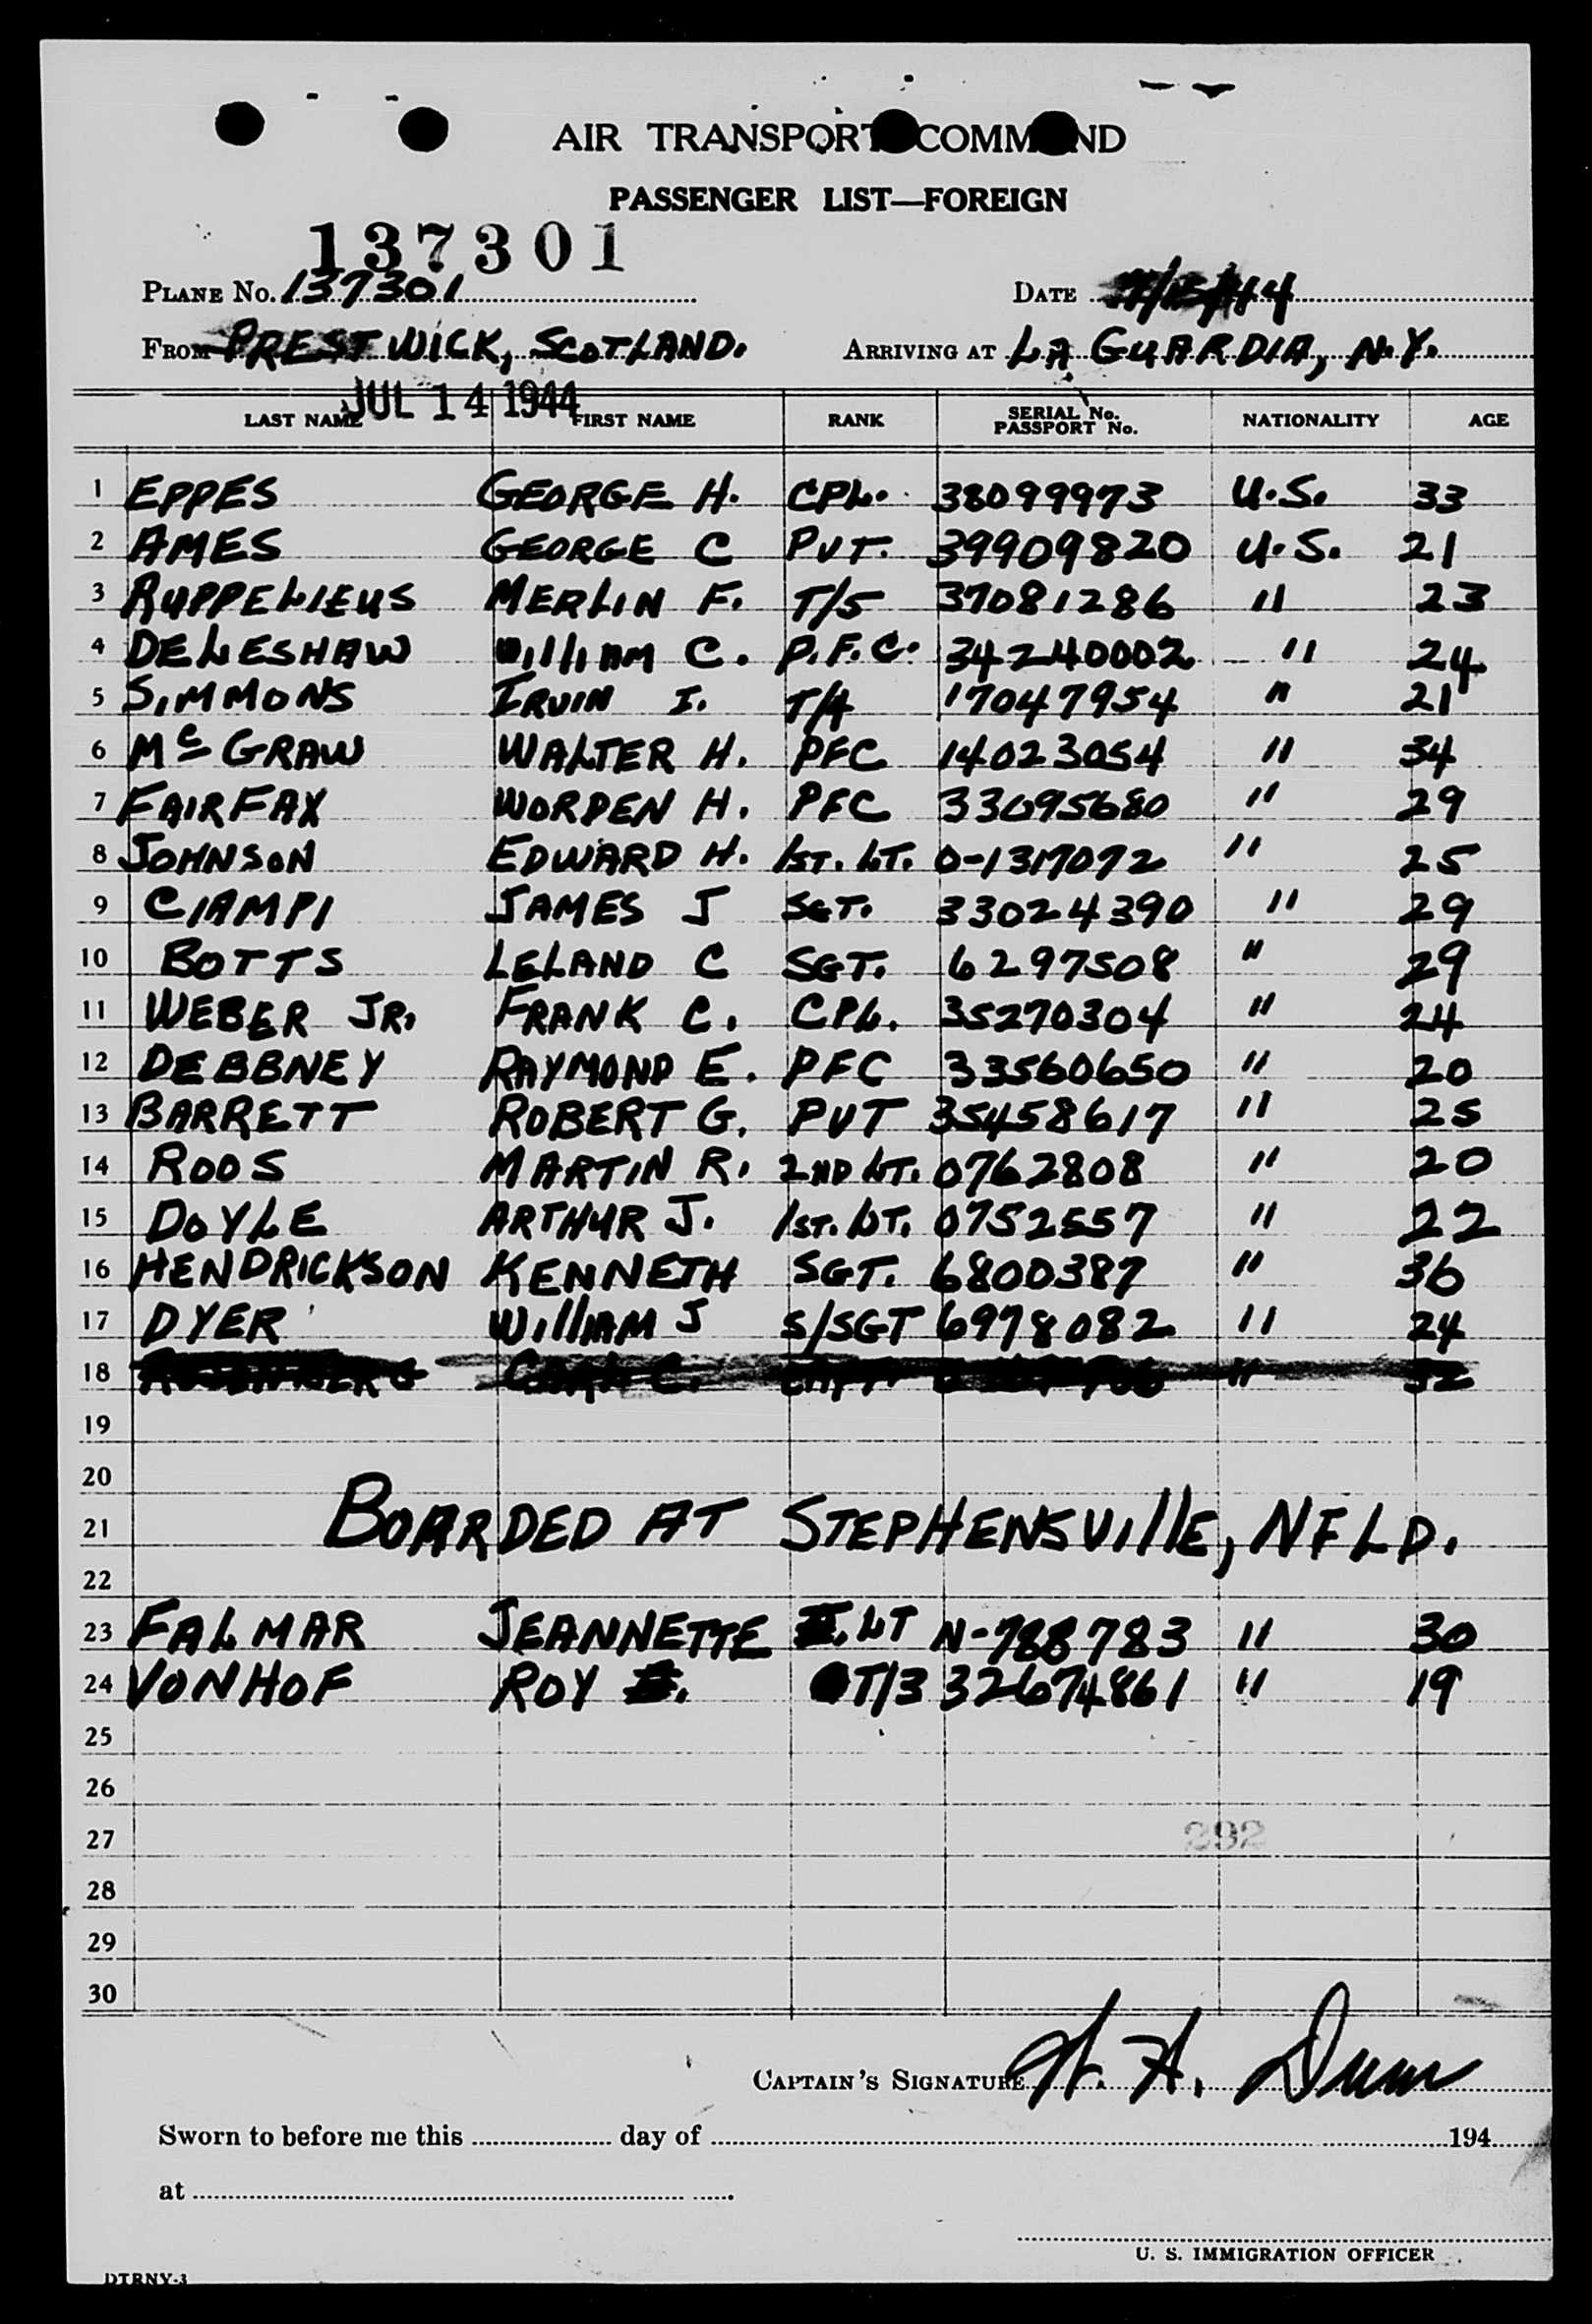 AIR TRANSPORT COMMAND
PASSENGER LIST—FOREIGN
137301
PLANE No. 137301 DATE 44
FROM PRESTWICK, SCOTLAND. ARRIVING AT LA GUARDIA, N.Y.
JUL 14 1944
LAST NAME FIRST NAME RANK SERIAL No. PASSPORT No. NATIONALITY AGE
1 EPPES GEORGE H. CPL. 38099973 U.S. 33
2 AMES GEORGE C PVT. 39909820 U.S. 21
3 RUPPELIEUS MERLIN F. T/5 37081286 " 23
4 DELESHAW William C. P.F.C. 34240002 " 24
5 SIMMONS IRVIN I. T/4 17047954 " 21
6 McGRAW WALTER H. PFC 14023054 " 34
7 FAIRFAX WORDEN H. PFC 33095680 " 29
8 JOHNSON EDWARD H. 1ST. LT. O-1317072 " 25
9 CIAMPI JAMES J SGT. 33024390 " 29
10 BOTTS LELAND C SGT. 6297508 " 29
11 WEBER JR. FRANK C. CPL. 35270304 " 24
12 DEBBNEY RAYMOND E. PFC 33560650 " 20
13 BARRETT ROBERT G. PVT 35458617 " 25
14 ROOS MARTIN R. 2ND LT. 0762808 " 20
15 DOYLE ARTHUR J. 1ST. LT. 0752557 " 22
16 HENDRICKSON KENNETH SGT. 6800387 " 36
17 DYER William J S/SGT 6978082 " 24
18 "
19
20
21 BOARDED AT STEPHENSVillE, NFLD.
22
23 FALMAR JEANNETTE LT N-788783 " 30
24 VONHOF ROY T/3 32674861 " 19
25
26
27 292
28
29
30
CAPTAIN'S SIGNATURE W. A. Dunn
Sworn to before me this day of 194
at
U. S. IMMIGRATION OFFICER
DTRNY-3